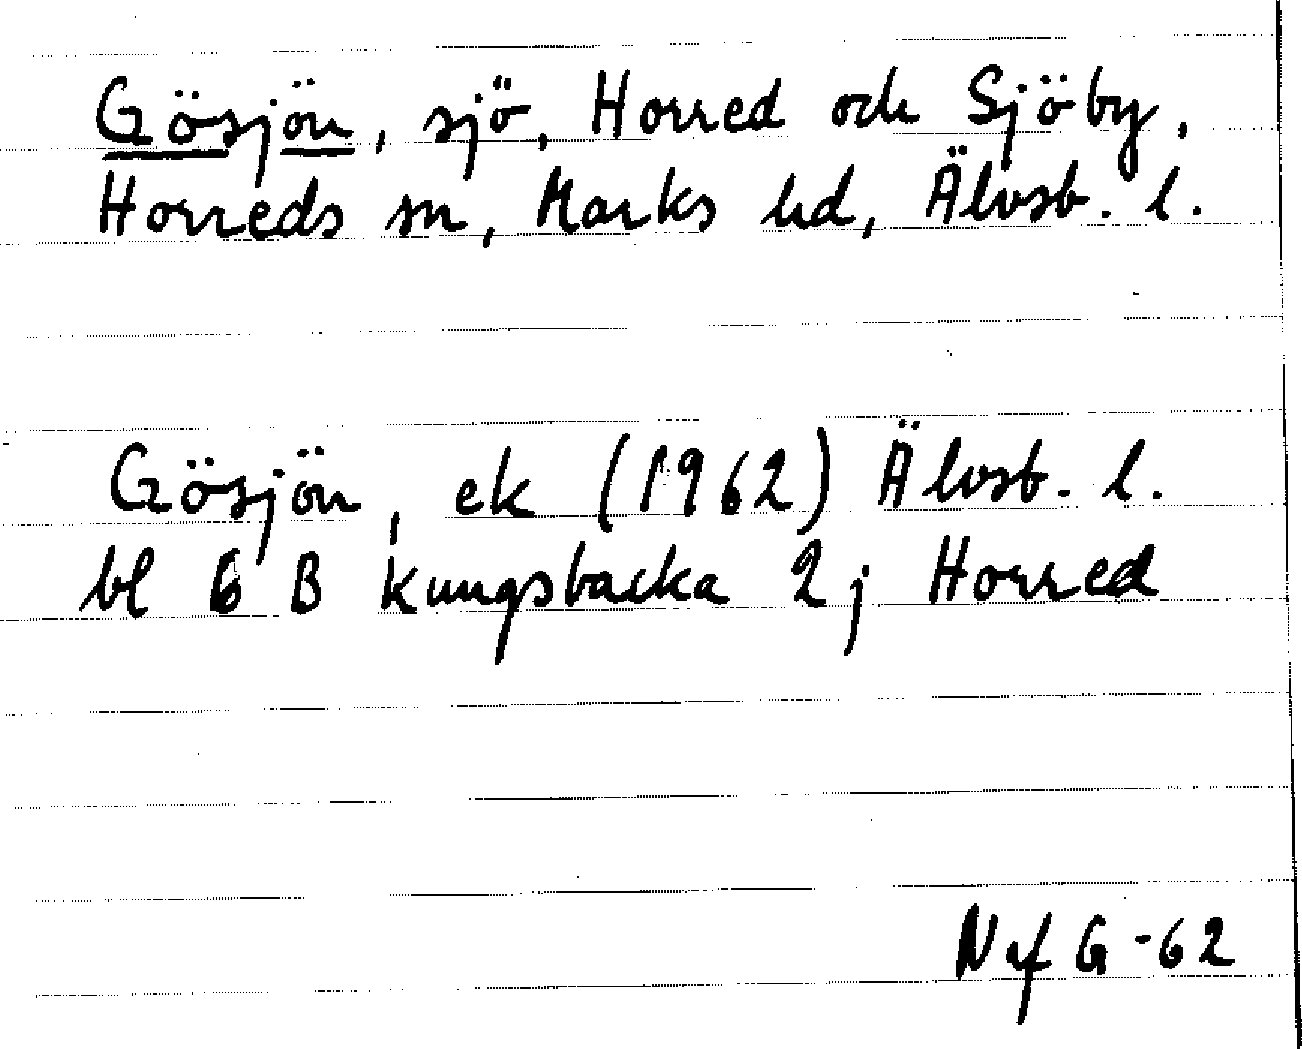 Gösjön, sjö, Horred och Sjöby,
Horreds sn, Marks hd, Älvsb. l.
Gösjön, ek (1962) Älvsb. l.
bl 6 B Kungsbacka 2 j Horred
Nf G-62